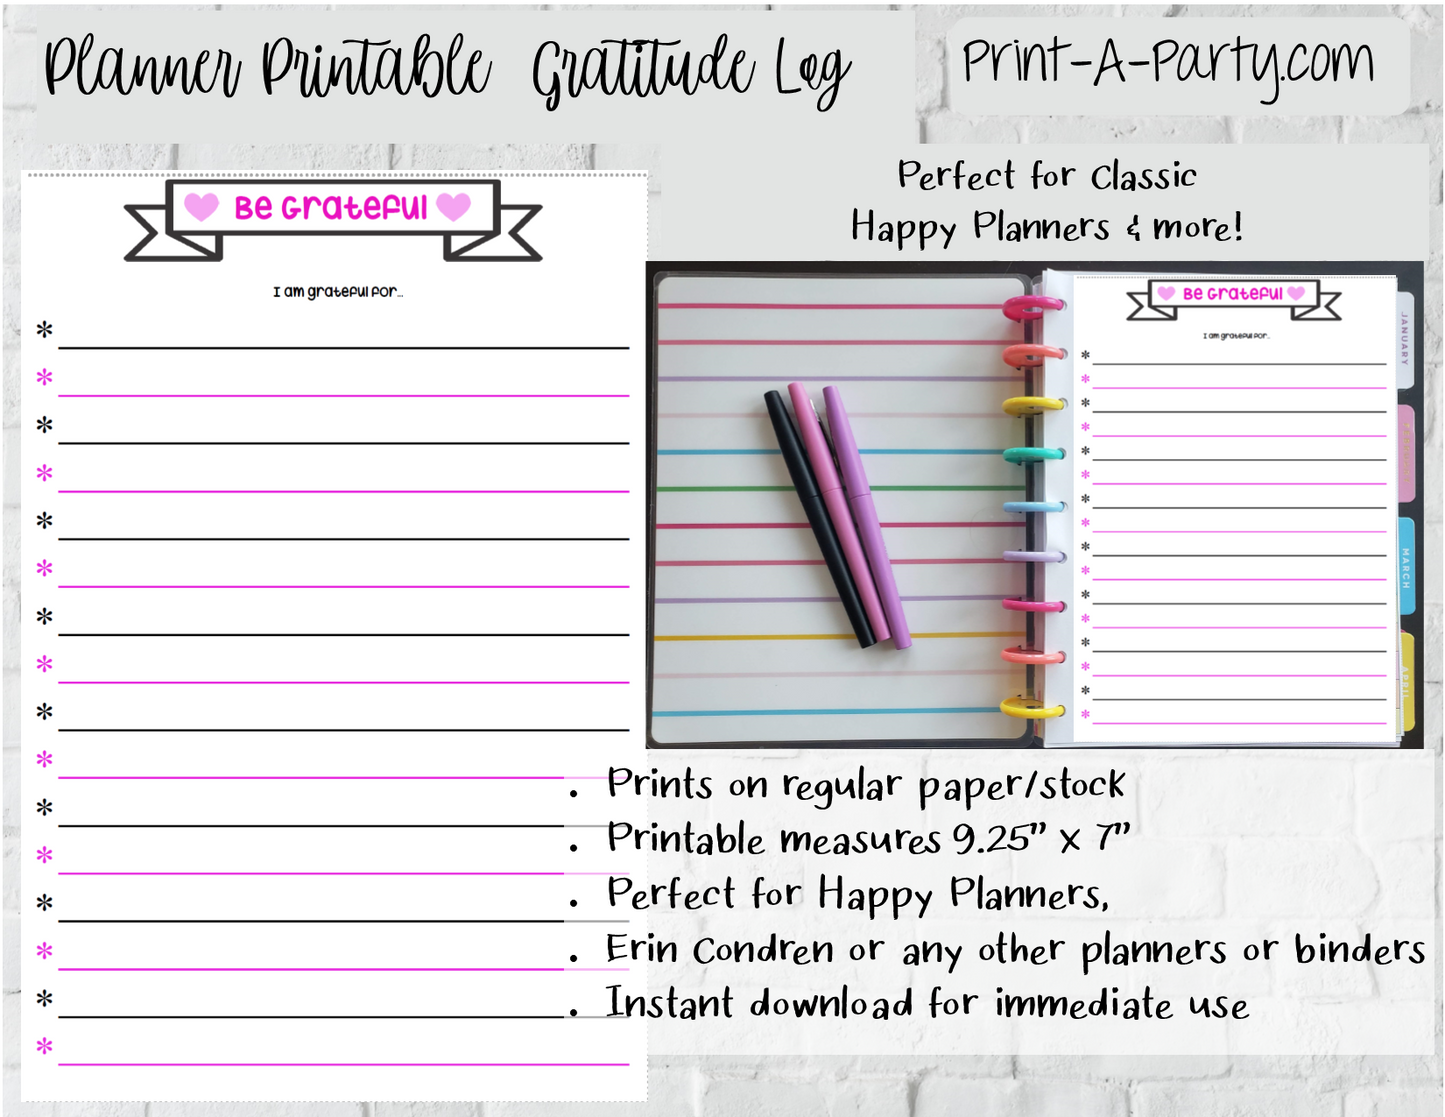 Planner Printable Gratitude Log
Print-A-Party.com
Be Grateful
I am grateful for...
*
*
*
*
*
*
*
*
*
*
*
*
*
*
*
*
Perfect for Classic
Happy Planners & more!
Be Grateful
I am grateful for...
*
*
*
*
*
*
*
*
*
*
*
*
*
*
*
*
JANUARY
MARCH
APRIL
. Prints on regular paper/stock
. Printable measures 9.25” x 7”
. Perfect for Happy Planners,
. Erin Condren or any other planners or binders
. Instant download for immediate use